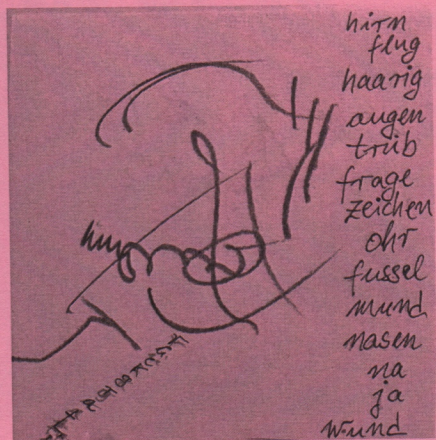 hirn
flug
haarig
augen
trüb
frage
zeichen
ohr
fussel
mund
nasen
na
ja
wund